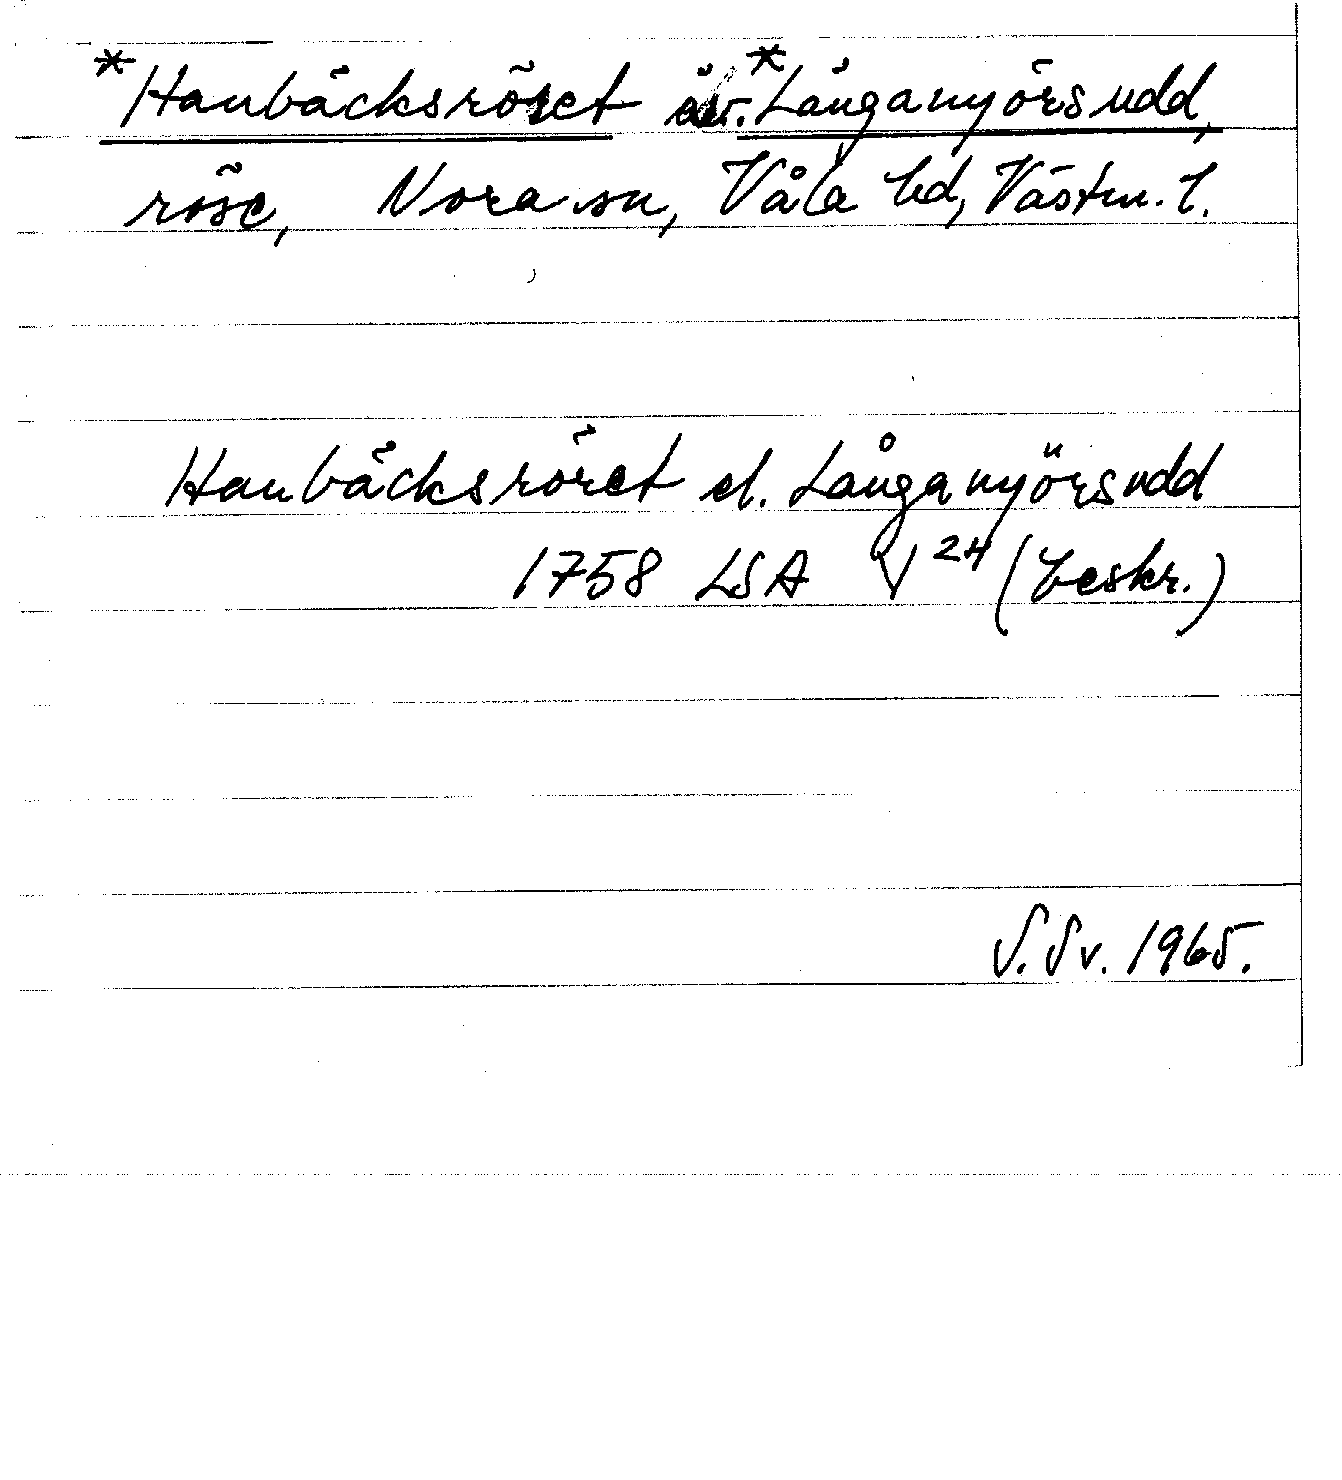 *Hanbäcksröset äv. *Långamyörsudd,
röse, Nora sn, Våla hd, Västm. l.
Hanbäcksröret el. Långamyörsudd
1758 LSA V 24 (beskr.)
S. Sv. 1965.